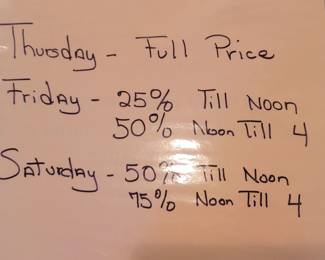 Thursday - Full Price
Friday - 25% Till Noon
50% Noon Till 4
Saturday - 50% Till Noon
75% Noon Till 4